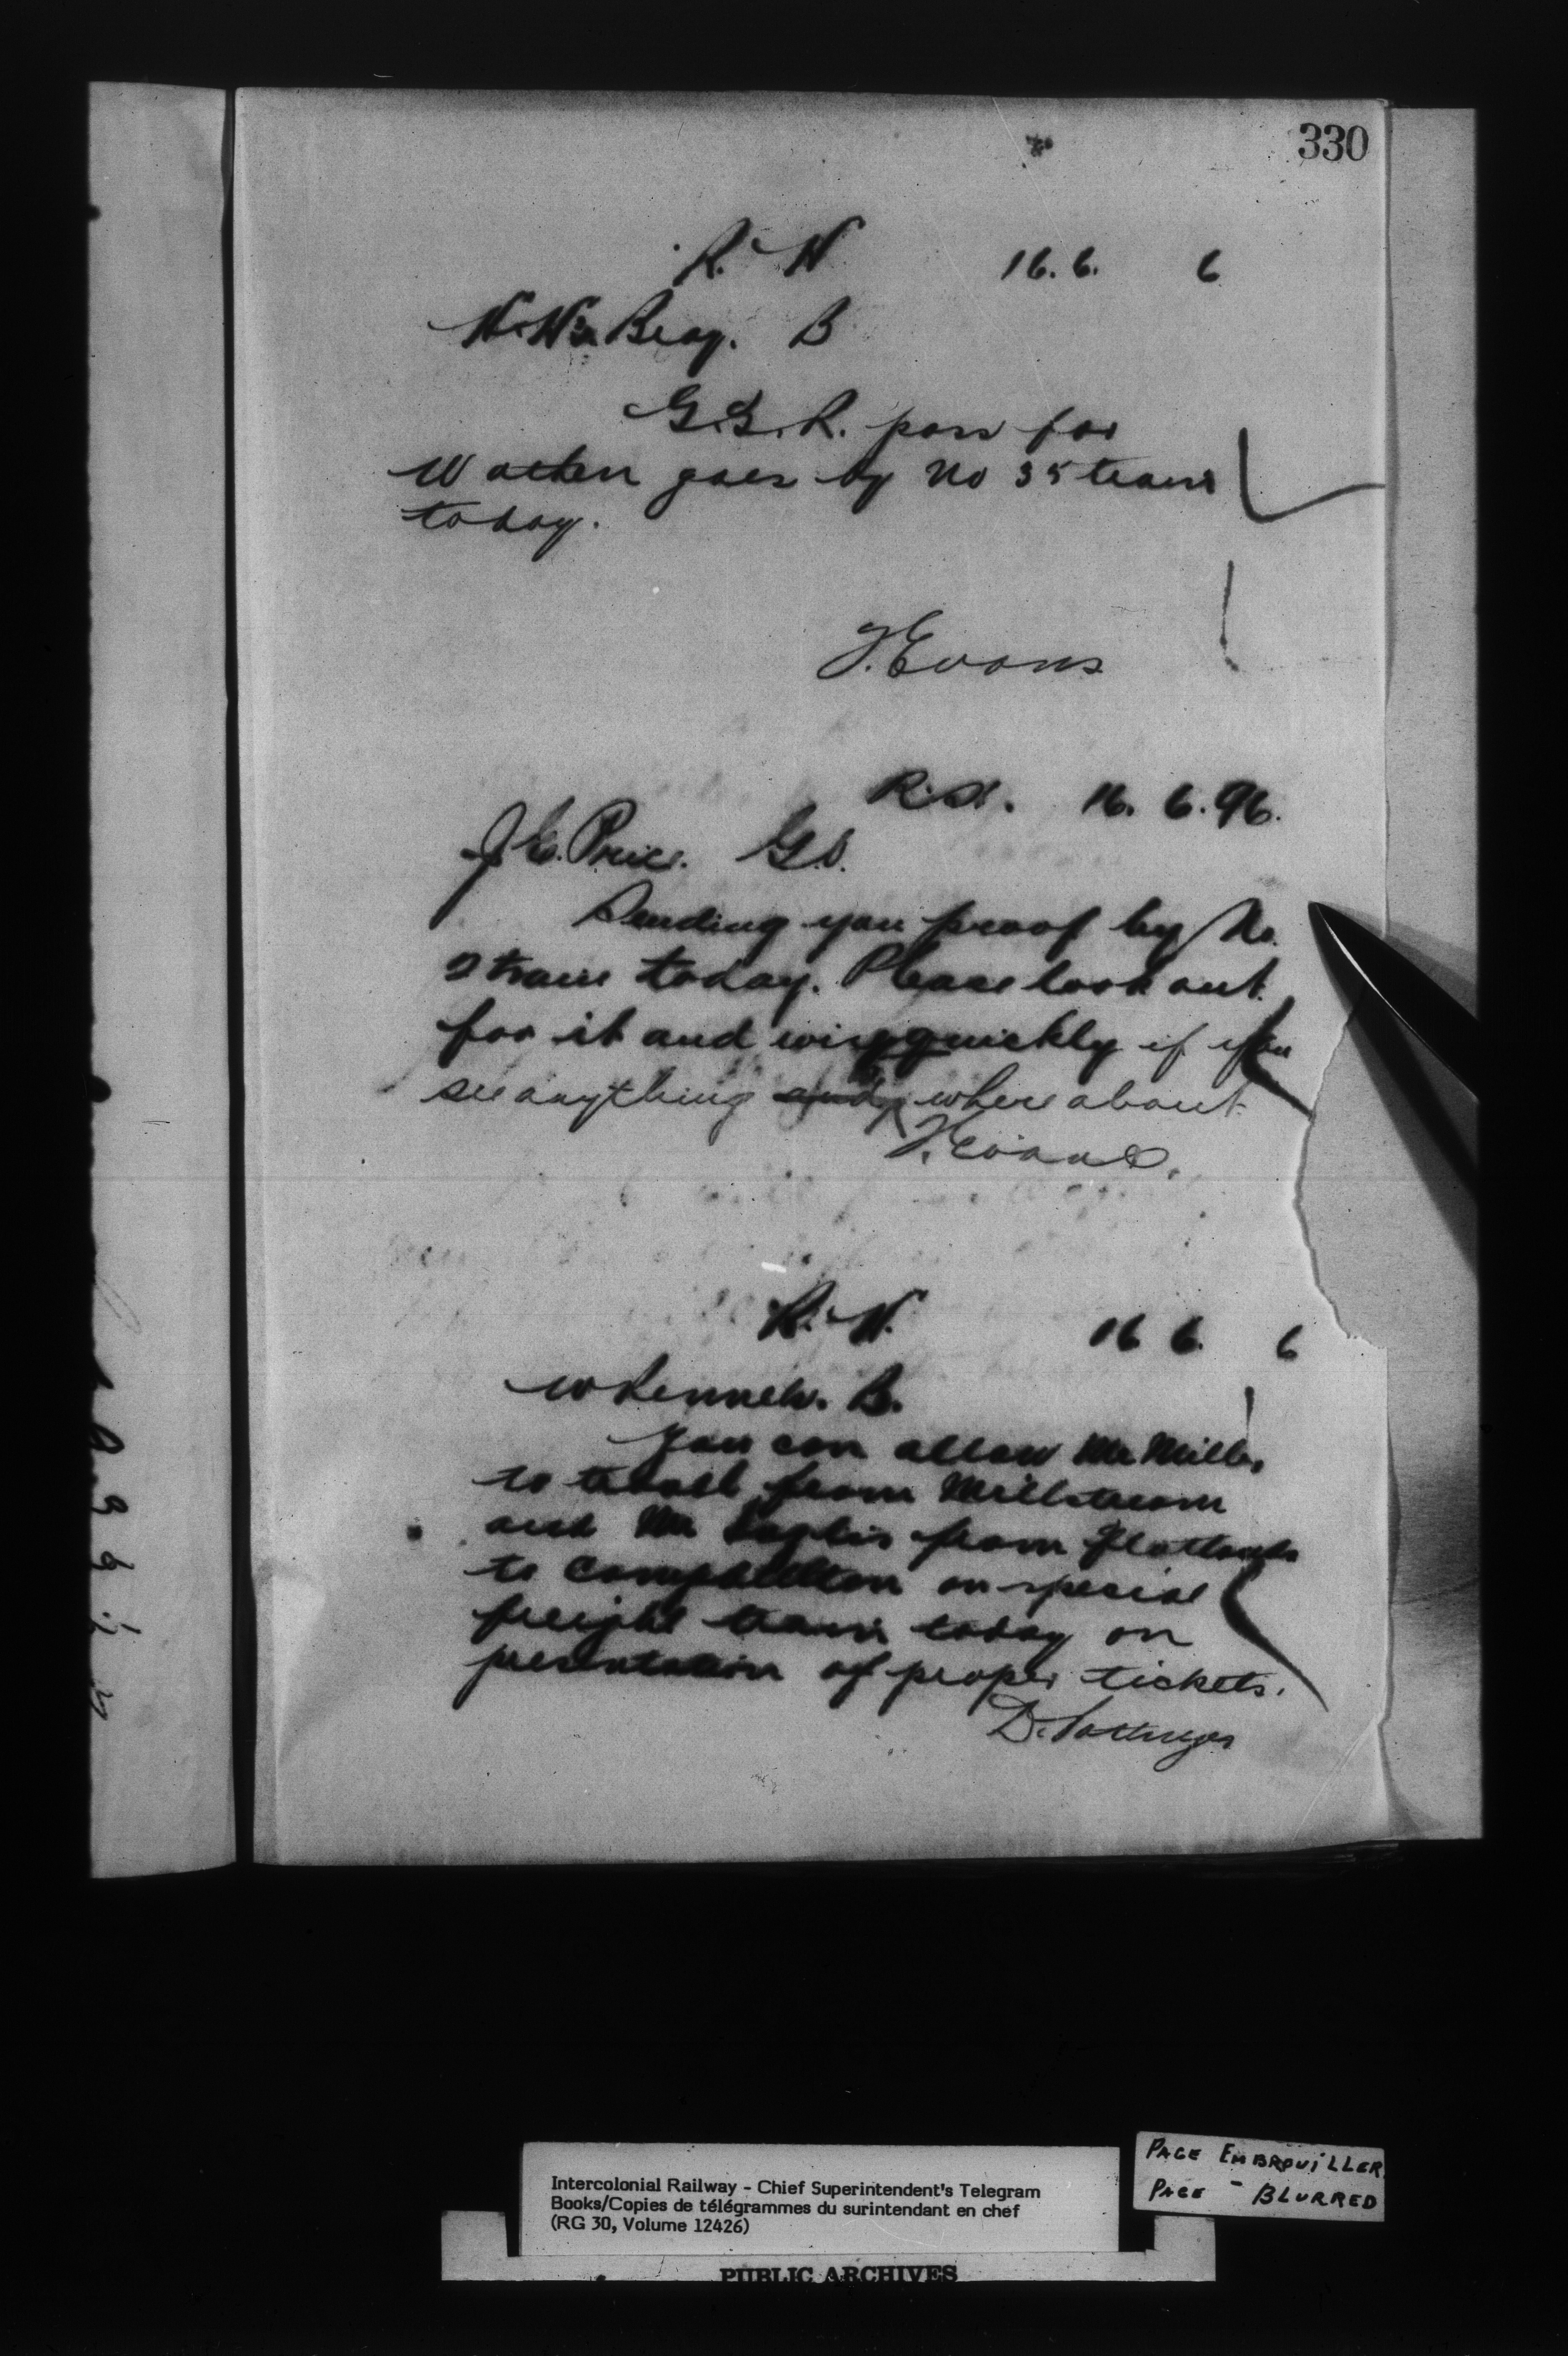 330
R. N 16. 6. 6
B
G.S.R. pass for
goes by No 35 train
today.
T. Evans
16. 6. 96.
J. E. Price. G.S.
Sending you proof by No.
2 train today. Please look out
for it and wire quickly if you
see anything and where about
T. Evans.
R. N. 16 6. 6
W Rennels. B.
You can allow Mr Miller
to travel from Millstream
and Mr from Flatlands
to Campbellton on special
freight train today on
presentation of proper tickets.
D. Pottinger
Intercolonial Railway - Chief Superintendent's Telegram
Books/Copies de télégrammes du surintendant en chef
(RG 30, Volume 12426)
PAGE EMBROUILLER
PAGE - BLURRED
PUBLIC ARCHIVES